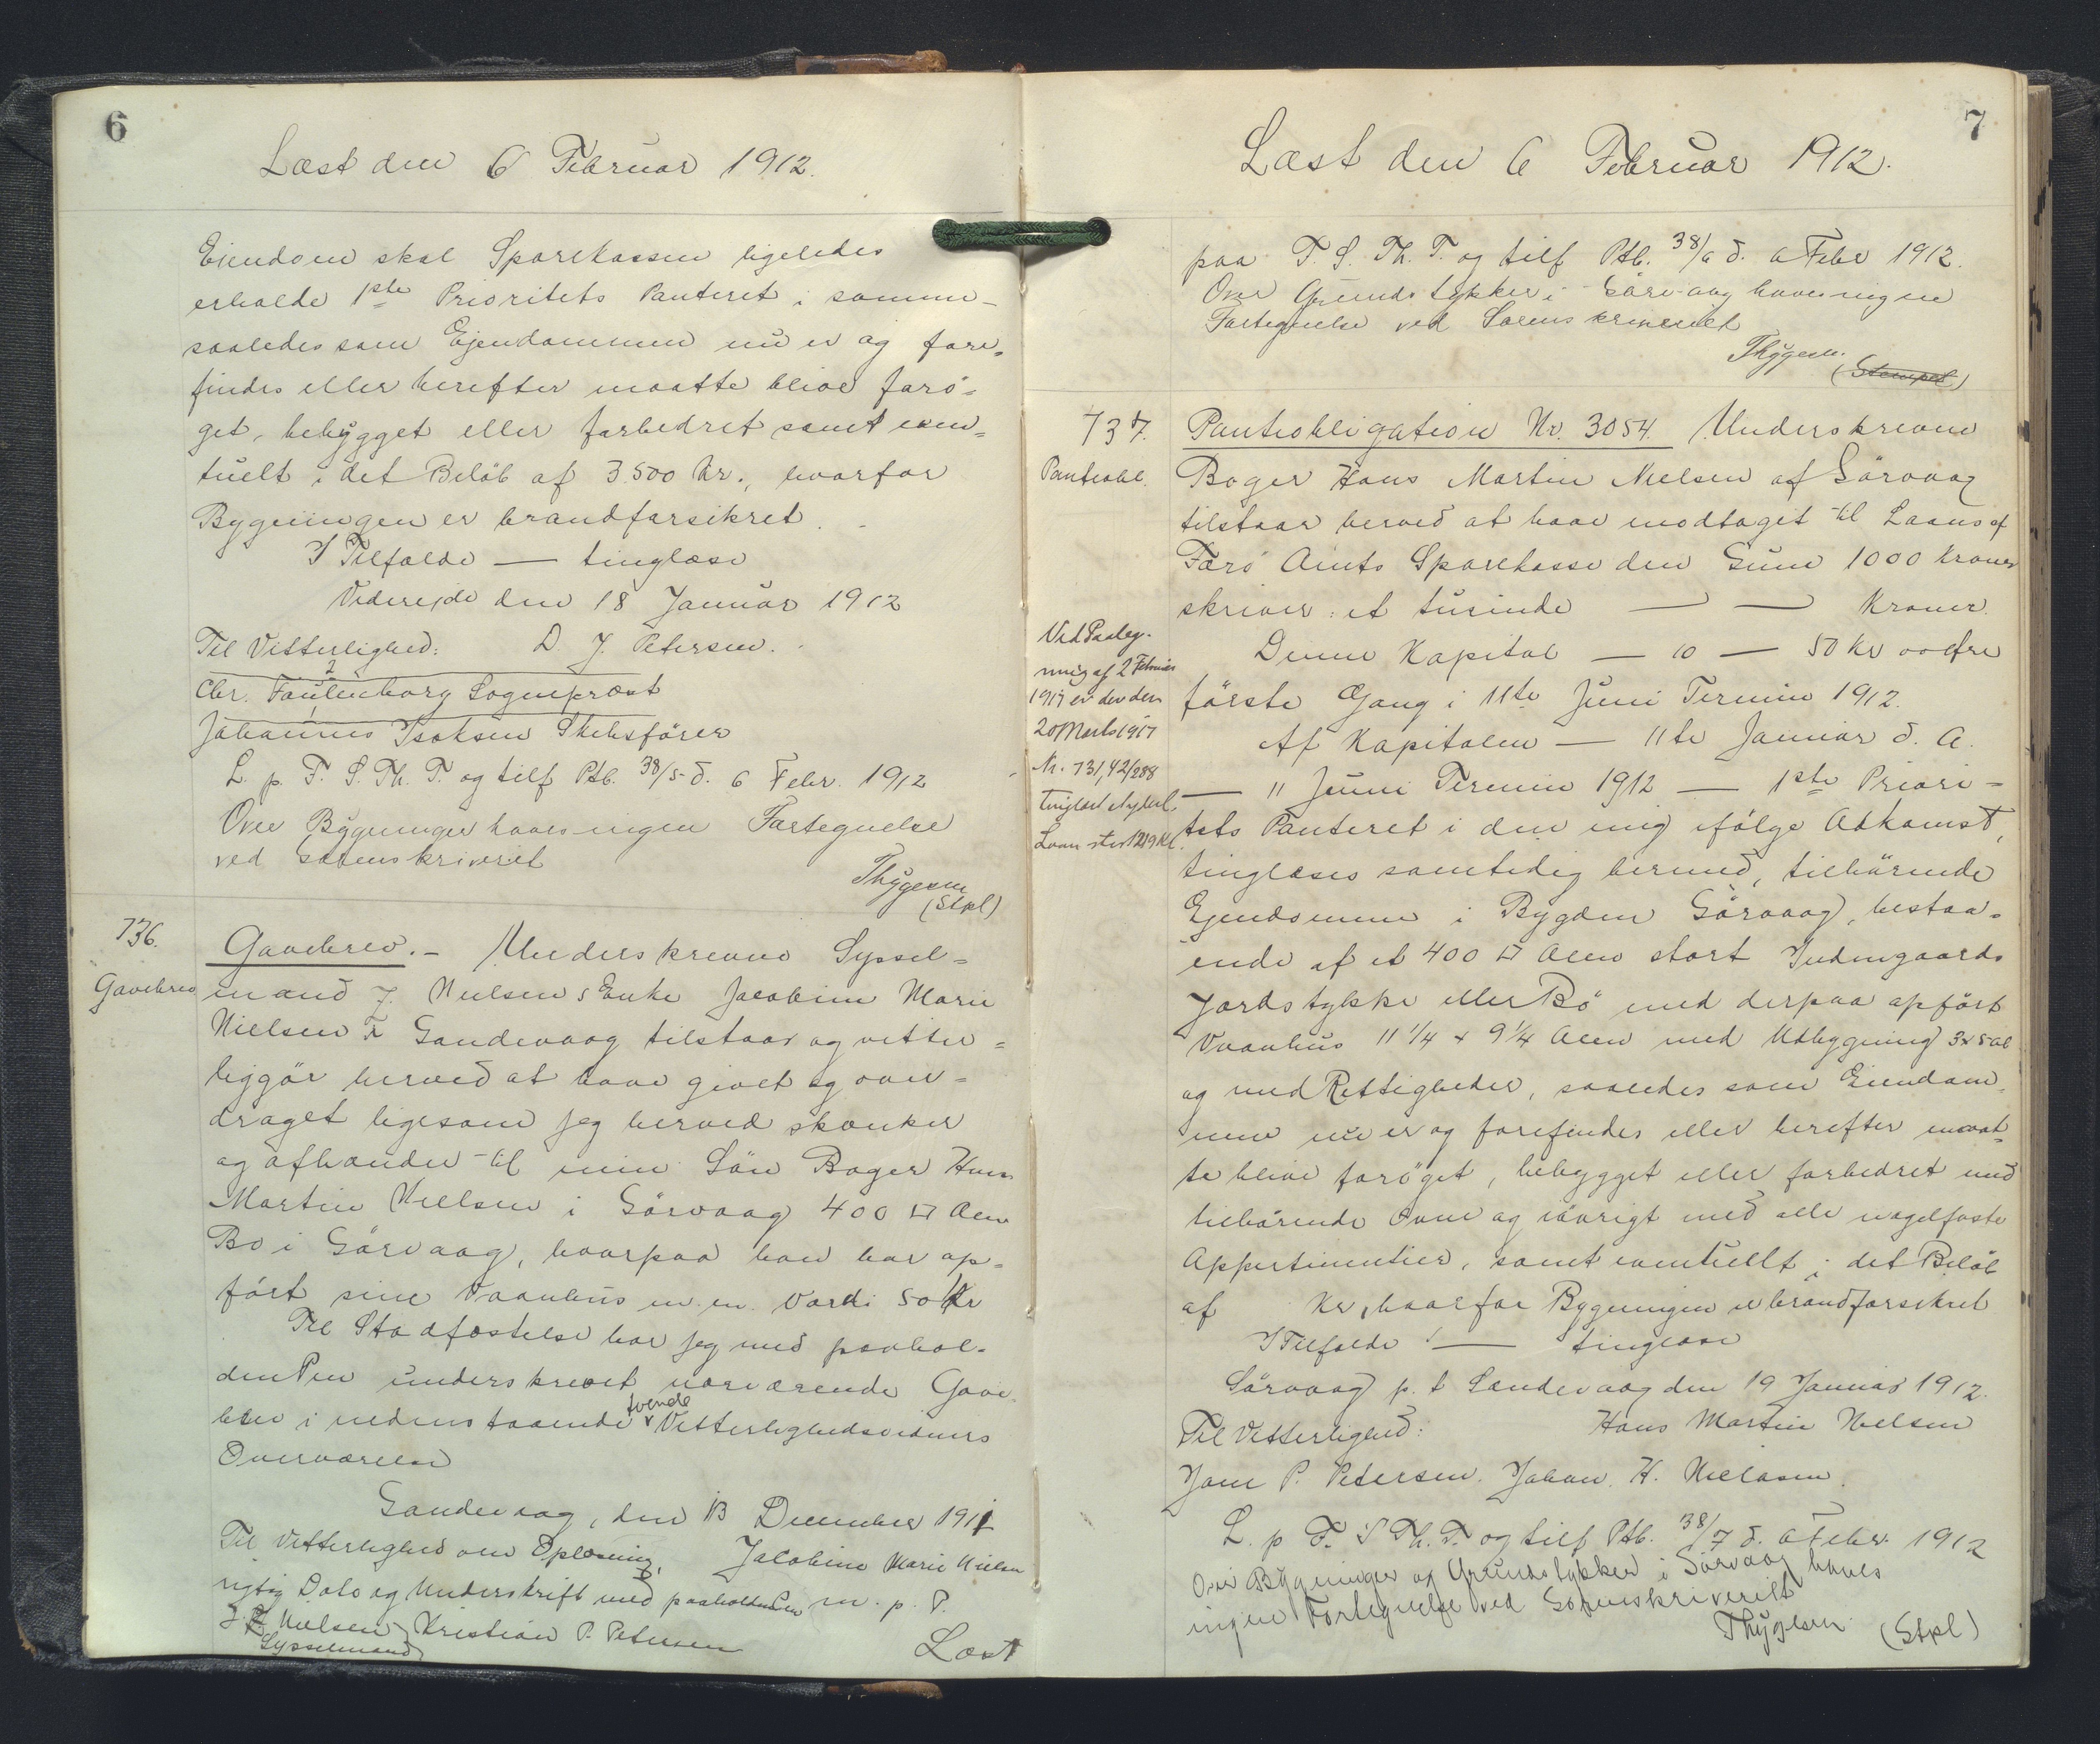 6
Læst den 6 Februar 1912.
Eiendom skal Sparekassen ligeledes
erholde 1ste Prioritets Panteret i samme –
saaledes som Ejendommen nu er og fore=
findes eller herefter maatte blive forö=
get, bebygget eller forbedret samt even=
tuelt i det Belöb af 3.500 Kr., hvorfor
Bygningen er brandforsikret.
I Tilfælde — tinglæse
Videreide den 18 Januar 1912
Til Vitterlighed: D. J. Petersen.
Chr. Faulenborg Sognepræst
Johannes Isaksen Skibsförer
L. p. F. S. Th. T. og tilf Ptb. 38/5 d. 6 Febr. 1912
Over Bygninger haves ingen Fortegnelse
ved Sorenskriveriet
Thygesen
(Stpl)
736.
Gavebrev
Gavebrev. – Underskrevne Syssel=
mand J. Nielsens Enke Jacobine Marie
Nielsen fr Sandevaag tilstaar og vitter=
liggör herved at have givet og over=
draget ligesom jeg herved skænker
og afhænder til min Sön Bager Hans
Martin Nielsen i Sörvaag 400 □ Alen
Bö i Sörvaag, hvorpaa han har op=
fört sine Vaanhus m.m. Værdi 50 Kr
Til Stadfæstelse har jeg med paahol=
den Pen underskrevet nærværende Gave
brev i nedenstaaende tvende Vitterlighedsvidners
Overværelse
Sandevaag, den 13 December 1911
Til Vitterlighed om Oplæsning, Jacobine Marie Nielsen
rigtig Dato og Underskrift med paaholden Pen m. p. P.
J. Nielsen Kristian P. Petersen
Sysselmand
Læst
7
Læst den 6 Februar 1912.
paa F. S. Th. T. og tilf Ptb. 38/6 d. 6 Febr 1912.
Over Grundstykker i Sörvaag haves ingen
Fortegnelse ved Sorenskriveriet
Thygesen.
(Stempel)
737.
Panteobl.
Panteobligation Nr. 3054. Underskrevne
Bager Hans Martin Nielsen af Sörvaag
tilstaar herved at have modtaget til Laans af
Færö Amts Sparekasse den Sum 1000 Kroner
skriver: et tusinde — — Kroner.
Denne Kapital — 10 — 50 Kr 00 Øre
förste Gang i 11te Juni Termin 1912.
Af Kapitalen — 11te Januar d. A.
— 11 Juni Termin 1912 — 1ste Priori–
tets Panteret i den mig ifölge Adkomst,
tinglæses samtidig hermed, tilhörende
Ejendomme i Bygden Sörvaag, bestaa=
ende af et 400 □ Alen stort Indmgaards
Jordstykke eller Bö med derpaa opfört
Vaanhus 11 1/4 x 9 1/4 Alen med Udbygning 3x5 al
og med Rettigheder, saaledes som Eiendom=
mene nu er og forefindes eller herefter maat=
te blive foröget, bebygget eller forbedret med
tilhörende Ovne og iövrigt med alle nagelfaste
Appertinentier, samt eventuellt i det Belöb
af Kr, hvorfor Bygningen er brandforsikret
I Tilfælde — tinglæse
Sörvaag p. t Sandevaag den 19 Januar 1912.
Til Vitterlighed: Hans Martin Nielsen
Joen P. Petersen. Johan H. Nielasen.
L. p F. S Th. T. og tilf Ptb. 38/7 d. 6 Febr. 1912
Over Bygninger og Grundstykker i Sörvaag haves
ingen Fortegnelse ved Sorenskriveriet
Thygesen (Stpl)
Ved Paateg-
ning af 2 Februar
1917 er der den
20 Marts 1917
Nr. 731, 42/288
tinglæst